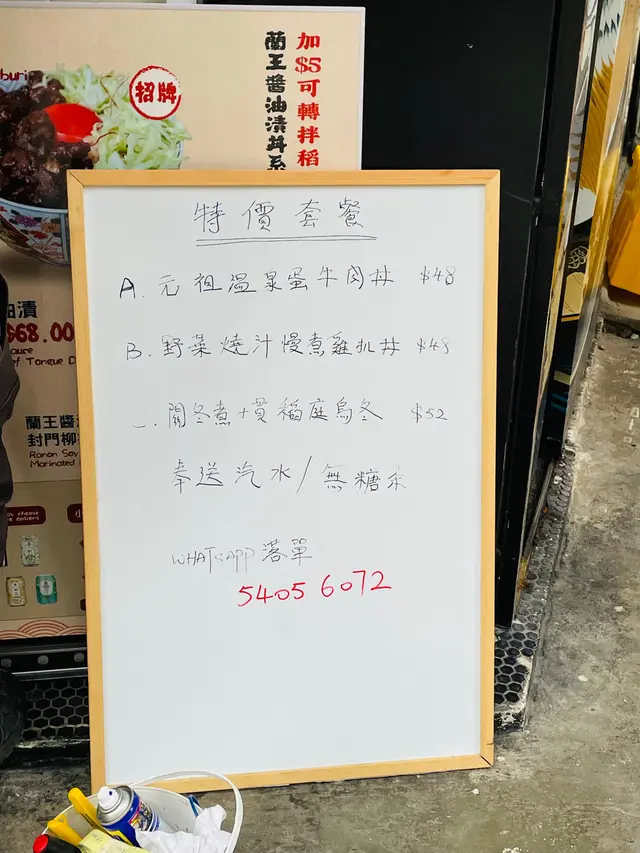 加$5可轉拌稻
蘭王醬油漬丼系
buri
招牌
油漬
$68.00
auce
of Tongue D
蘭王醬
封門柳
Ranan Soy
Marinated
特價套餐
A. 元祖溫泉蛋牛肉丼 $48
B. 野菜燒汁慢煮雞扒丼 $48
關冬煮+貫稻庭烏冬 $52
奉送汽水/無糖茶
WHATsapp 落單
5405 6072